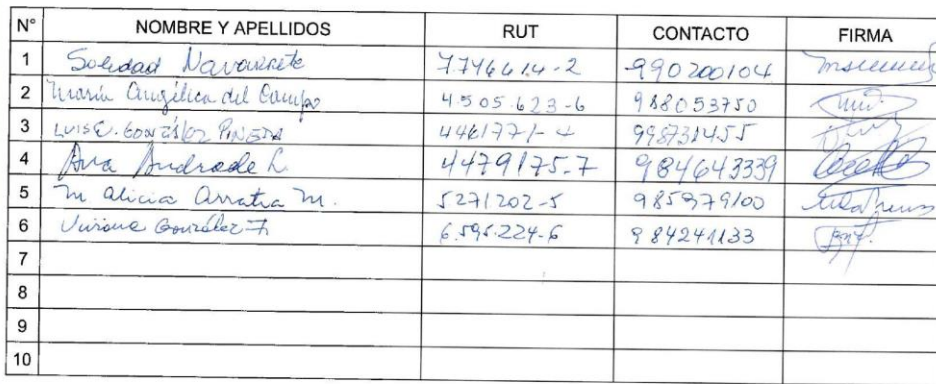 N° NOMBRE Y APELLIDOS RUT CONTACTO FIRMA
1 Soledad Navarrete 7746614-2 990200104
2 María Angélica del Campo 4.505.623-6 988053750
3 LUIS E. GONZÁLEZ PINEDA 998731455
4 Ana Andrade L. 4479175-7 984643339
5 M Alicia Arratia M. 5271202-5 985979100
6 Viviane González F. 6.595.224-6 984241133
7
8
9
10